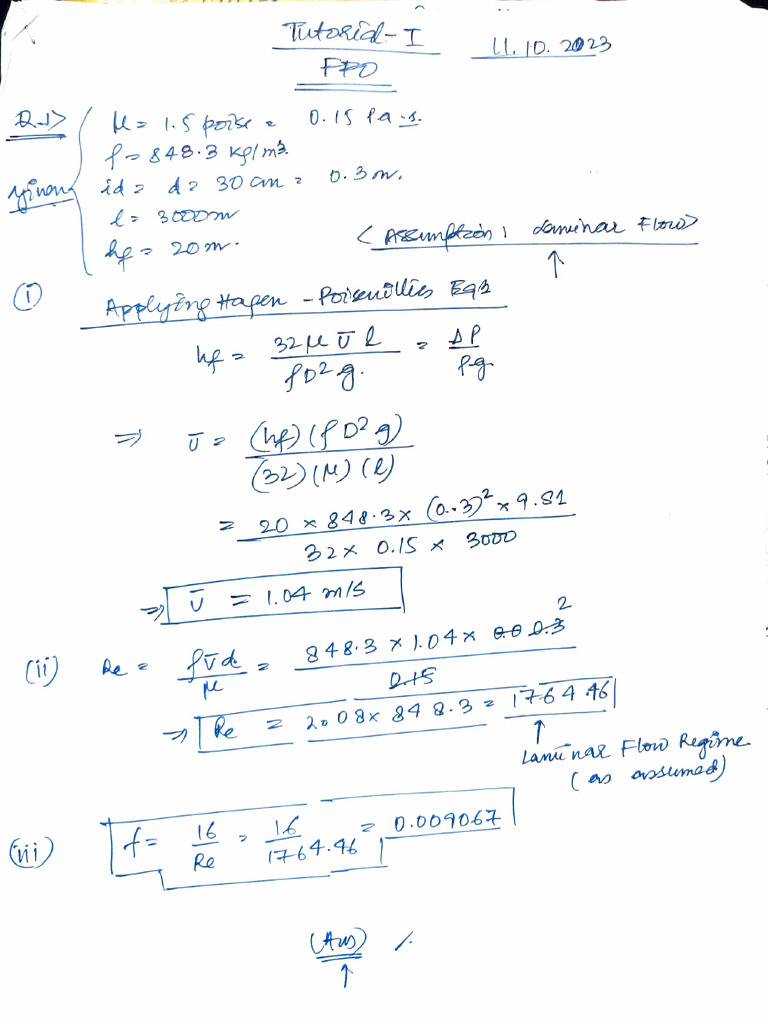 Tutorial-I
11.10.2023
FPO
Q-1> μ = 1.5 poise = 0.15 Pa-s.
ρ = 848.3 kg/m³.
given id = d = 30 cm = 0.3 m.
l = 3000m
hf = 20m.
<Assumption: Laminar Flow>
↑
(i) Applying Hagen-Poiseuillies Eqn
hf = 32 μ ū l / ρD² g. = ΔP / ρg
⇒ ū = (hf) (ρ D² g) / (32) (μ) (l)
= 20 × 848.3 × (0.3)² × 9.81 / 32 × 0.15 × 3000
⇒ ū = 1.04 m/s
(ii) Re = ρūd / μ = 848.3 × 1.04 × 0.3 2 / 0.15
⇒ Re = 2.08 × 848.3 = 1764.46
↑
Laminar Flow Regime
(as assumed)
(iii) f = 16 / Re = 16 / 1764.46 = 0.009067
(Ans)
↑